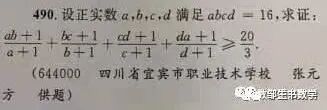 490. 设正实数 a,b,c,d 满足 abcd = 16,求证:
\frac{ab+1}{a+1} + \frac{bc+1}{b+1} + \frac{cd+1}{c+1} + \frac{da+1}{d+1} ⩾ \frac{20}{3}.
(644000 四川省宜宾市职业技术学校 张元
方 供题)